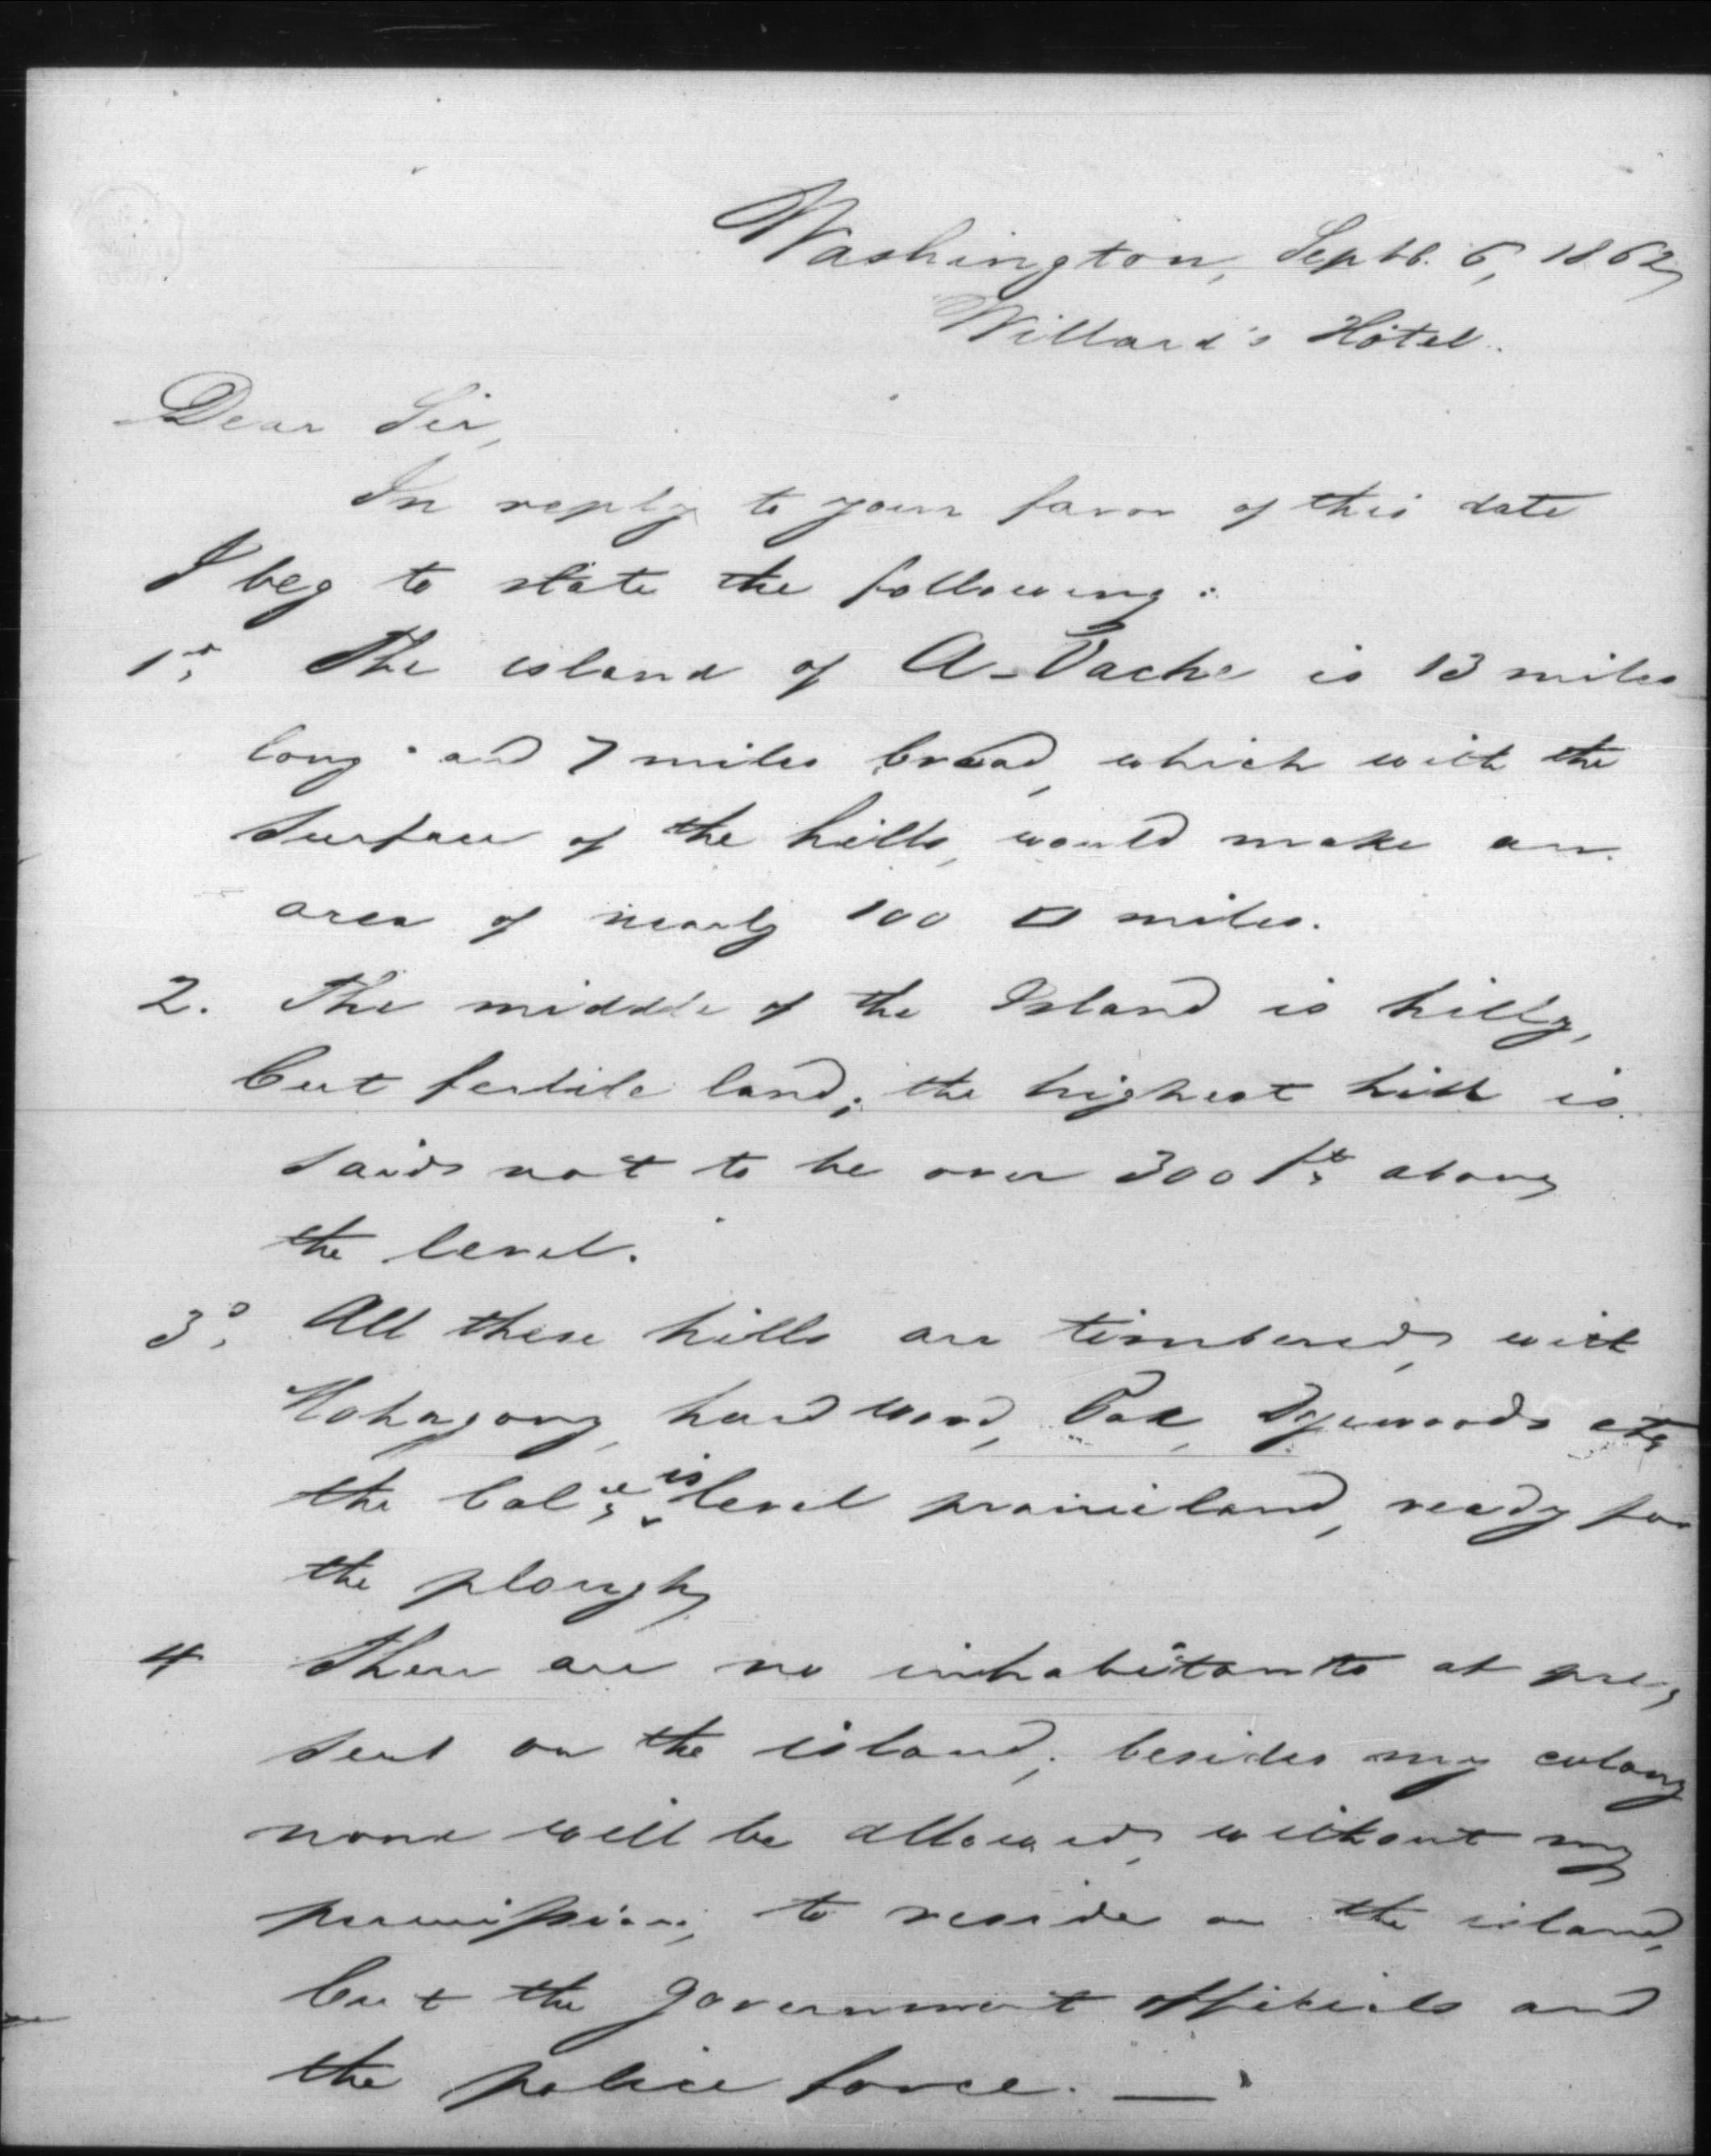 Washington, Septb. 6, 1862,
Willard's Hôtel.
Dear Sir,
In reply to your favor of this date
I beg to state the following:
1st, The island of A-Vache is 13 miles
long and 7 miles broad, which with the
surface of the hills, would make an
area of nearly 100 □ miles.
2. The middle of the Island is hilly,
but fertile land; the highest hill is
said not to be over 300 ft, above
the level.
3o, All these hills are timbered, with
Mahagony, hard wood, Oak, Dyewoods etc,
the balce, is level prairieland, ready for
the plough,
4 There are no inhabitants at pre-
sent on the island; besides my colony
none will be allowed, without my
permission, to reside on the island,
but the government officials and
the police force. —